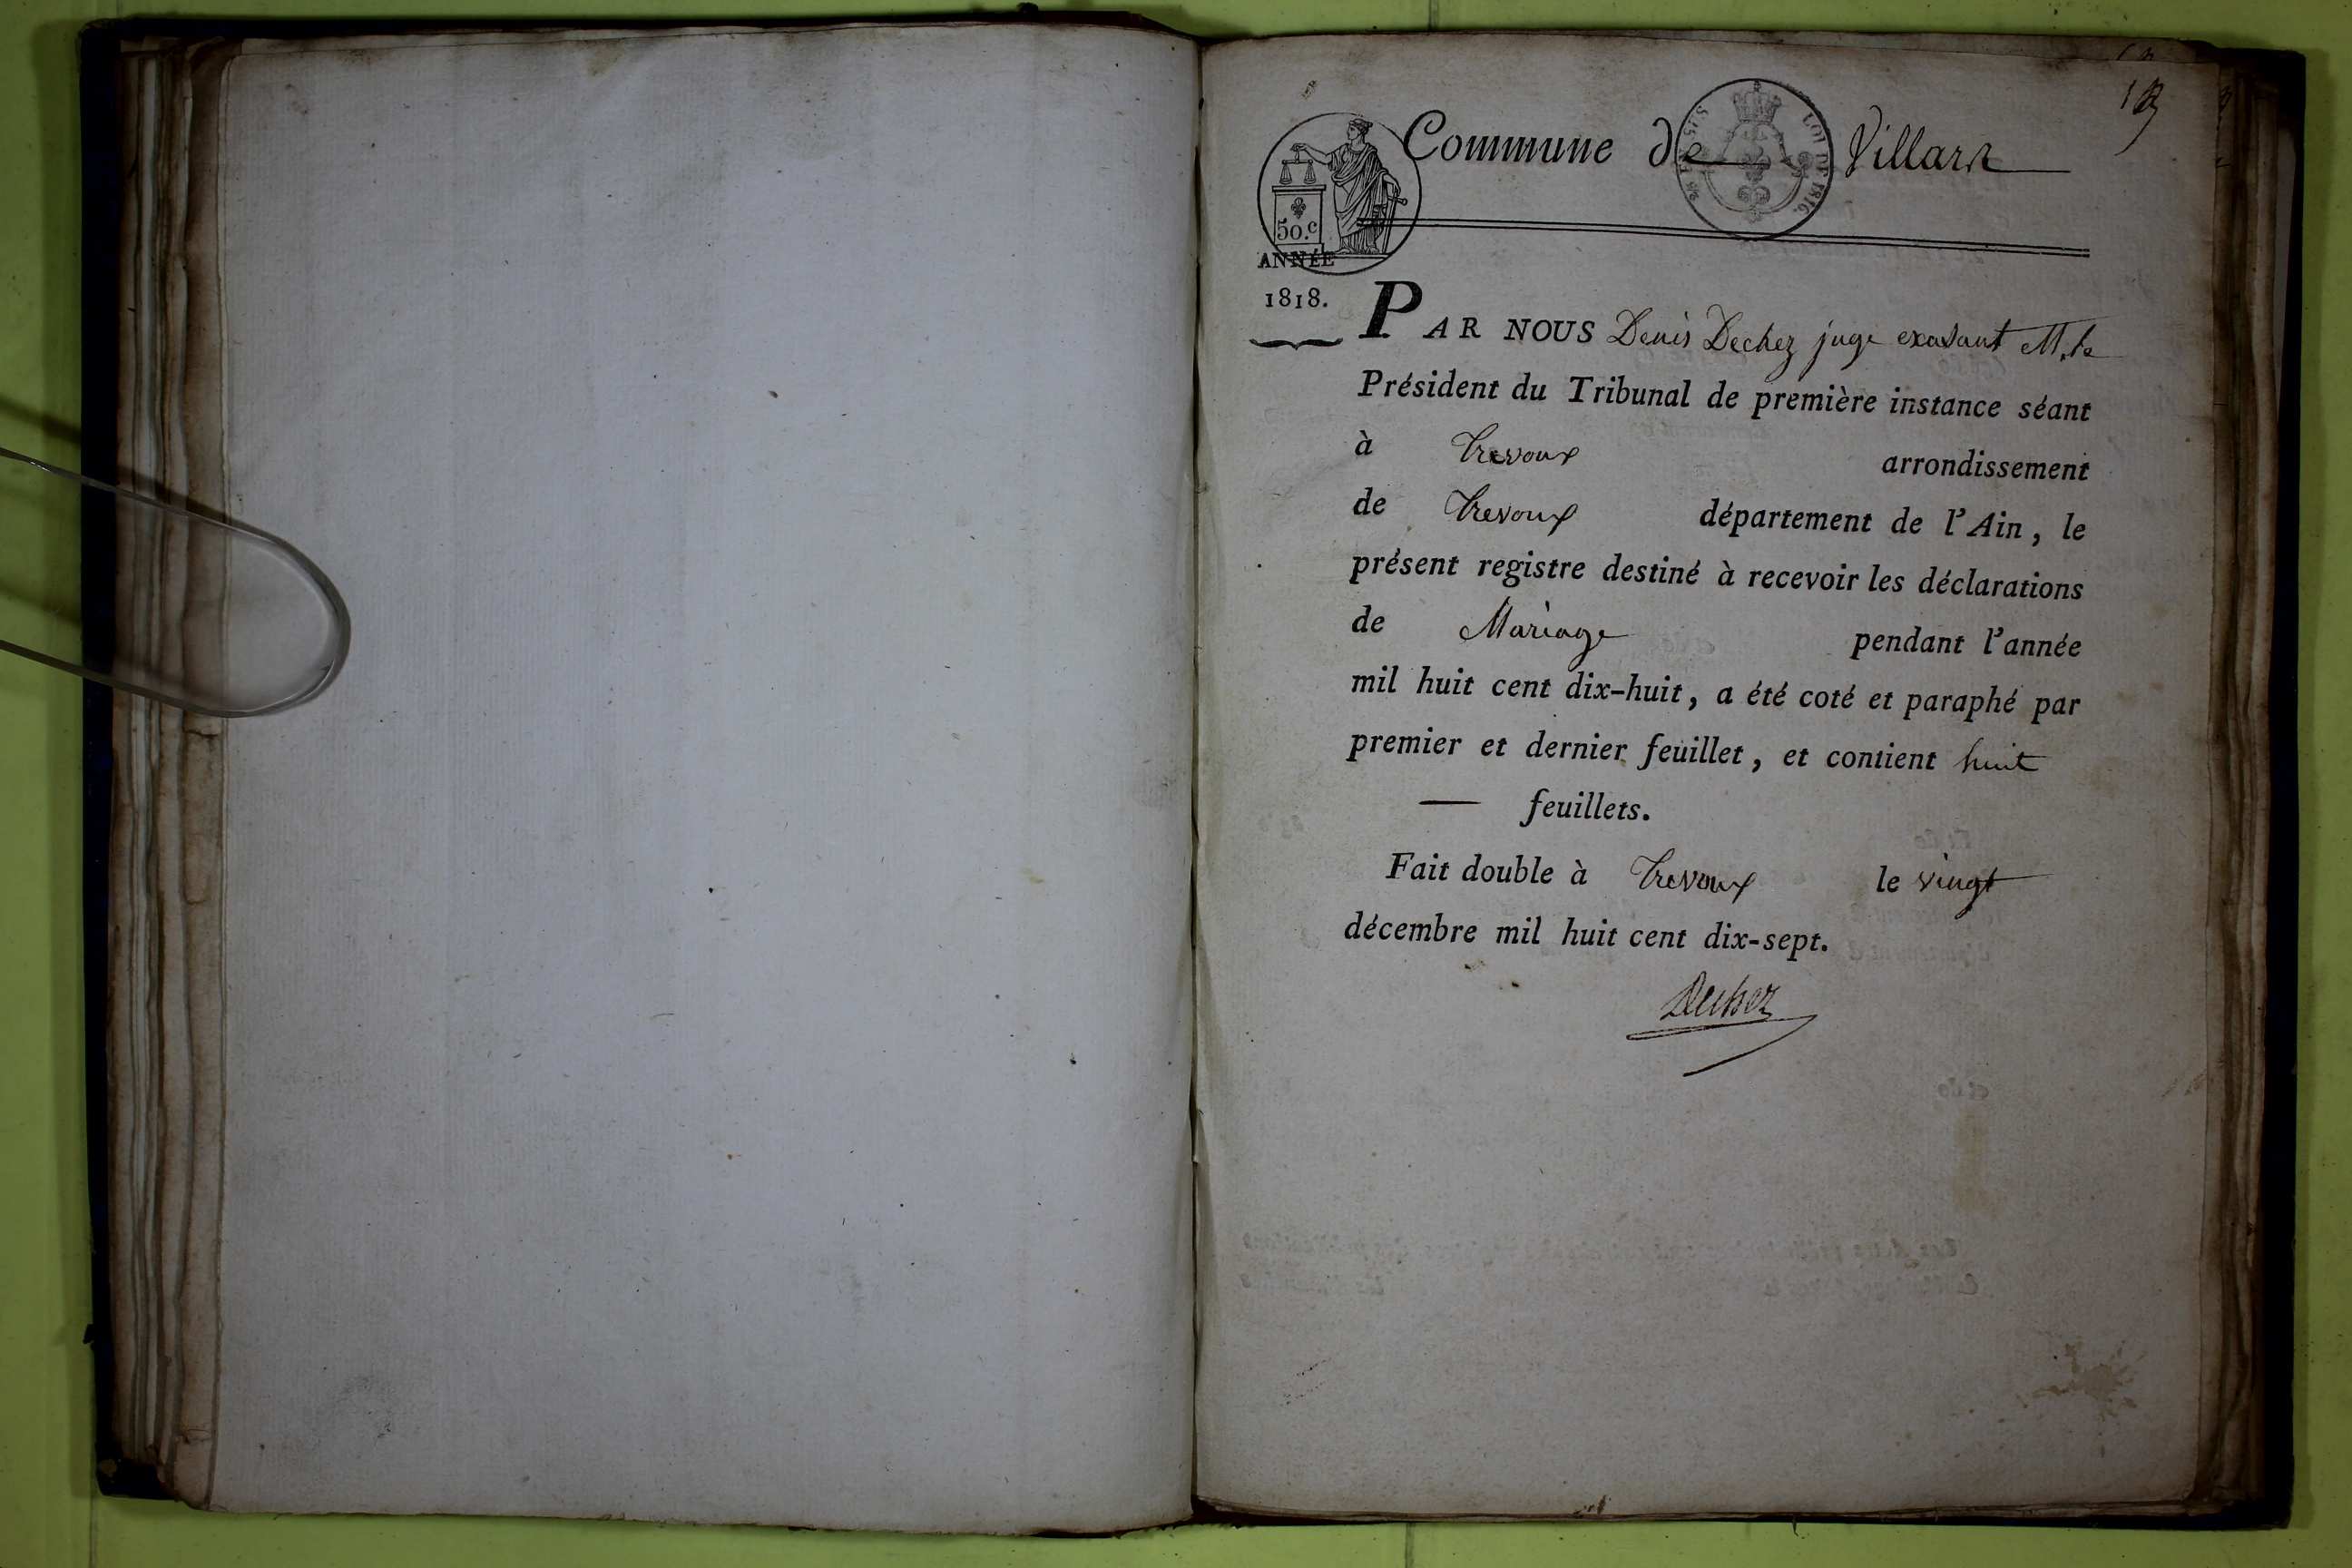 Commune de Villars
50.c
LOI DE 1816.
ANNÉE
1818.
PAR NOUS Denis Dechez juge M. le
Président du Tribunal de première instance séant
à Trevoux arrondissement
de Trevoux département de l'Ain, le
présent registre destiné à recevoir les déclarations
de Mariage pendant l'année
mil huit cent dix-huit, a été coté et paraphé par
premier et dernier feuillet, et contient huit
— feuillets.
Fait double à Trevoux le vingt
décembre mil huit cent dix-sept.
Dechez